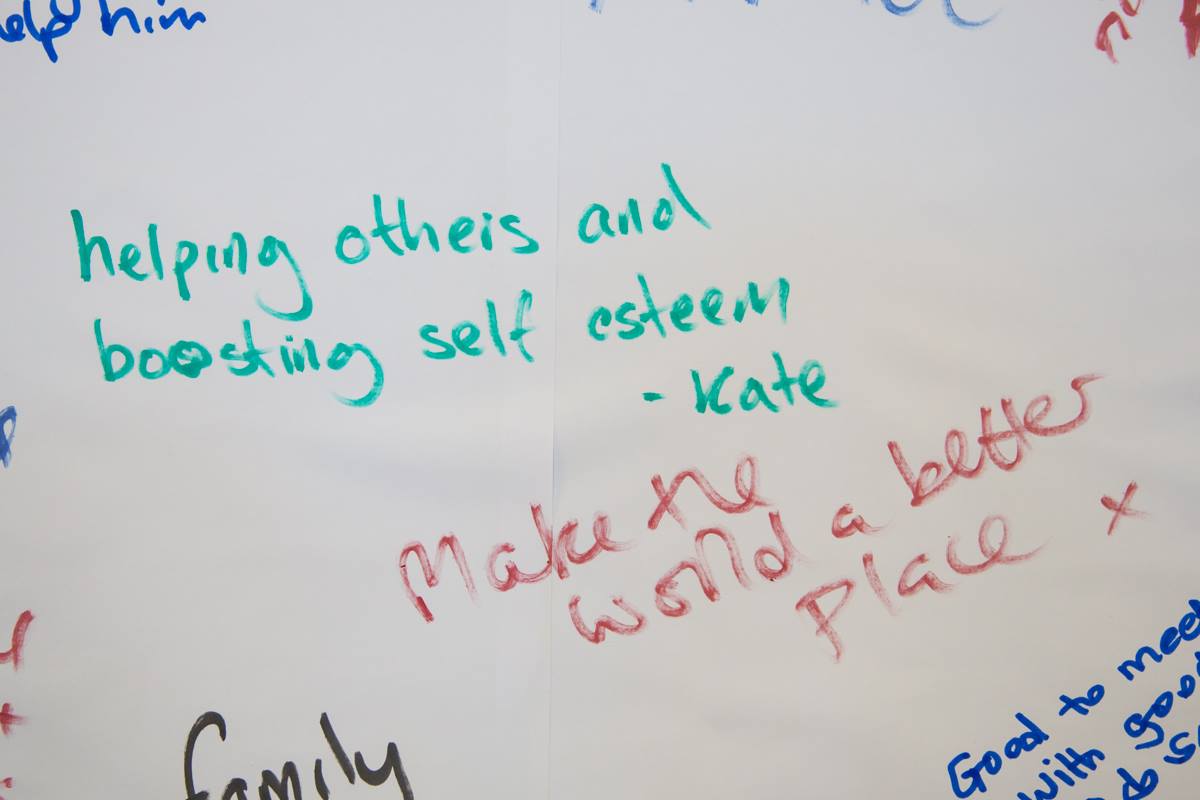 help him
helping others and
boosting self esteem
- Kate
Make the
world a better
place x
family
Good to meet
with good